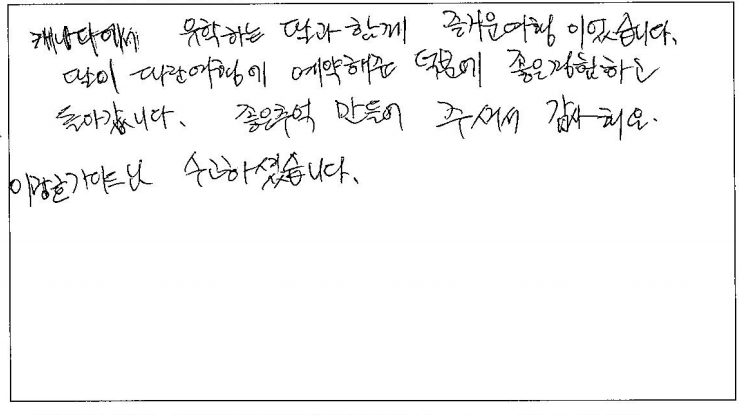 캐나다에서 유학하는 딸과 함께 즐거운여행 이었습니다.
딸이 여행에 예약해준 덕분에 좋은경험하고
돌아갑니다. 좋은추억 만들어 주셔서 감사해요.
가이드님 수고하셨습니다.